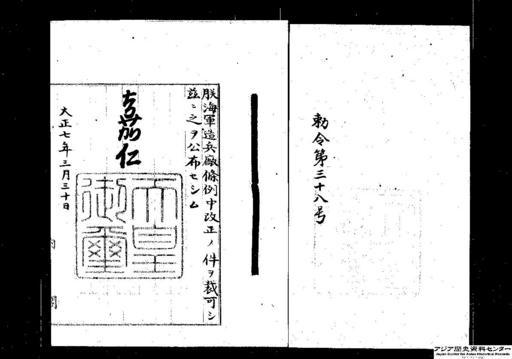 勅令第三十八号
朕海軍造兵廠條例中改正ノ件ヲ裁可シ
玆ニ之ヲ公布セシム
嘉仁
天皇御璽
大正七年三月三十日
内閣
アジア歴史資料センター
Japan Center for Asian Historical Records